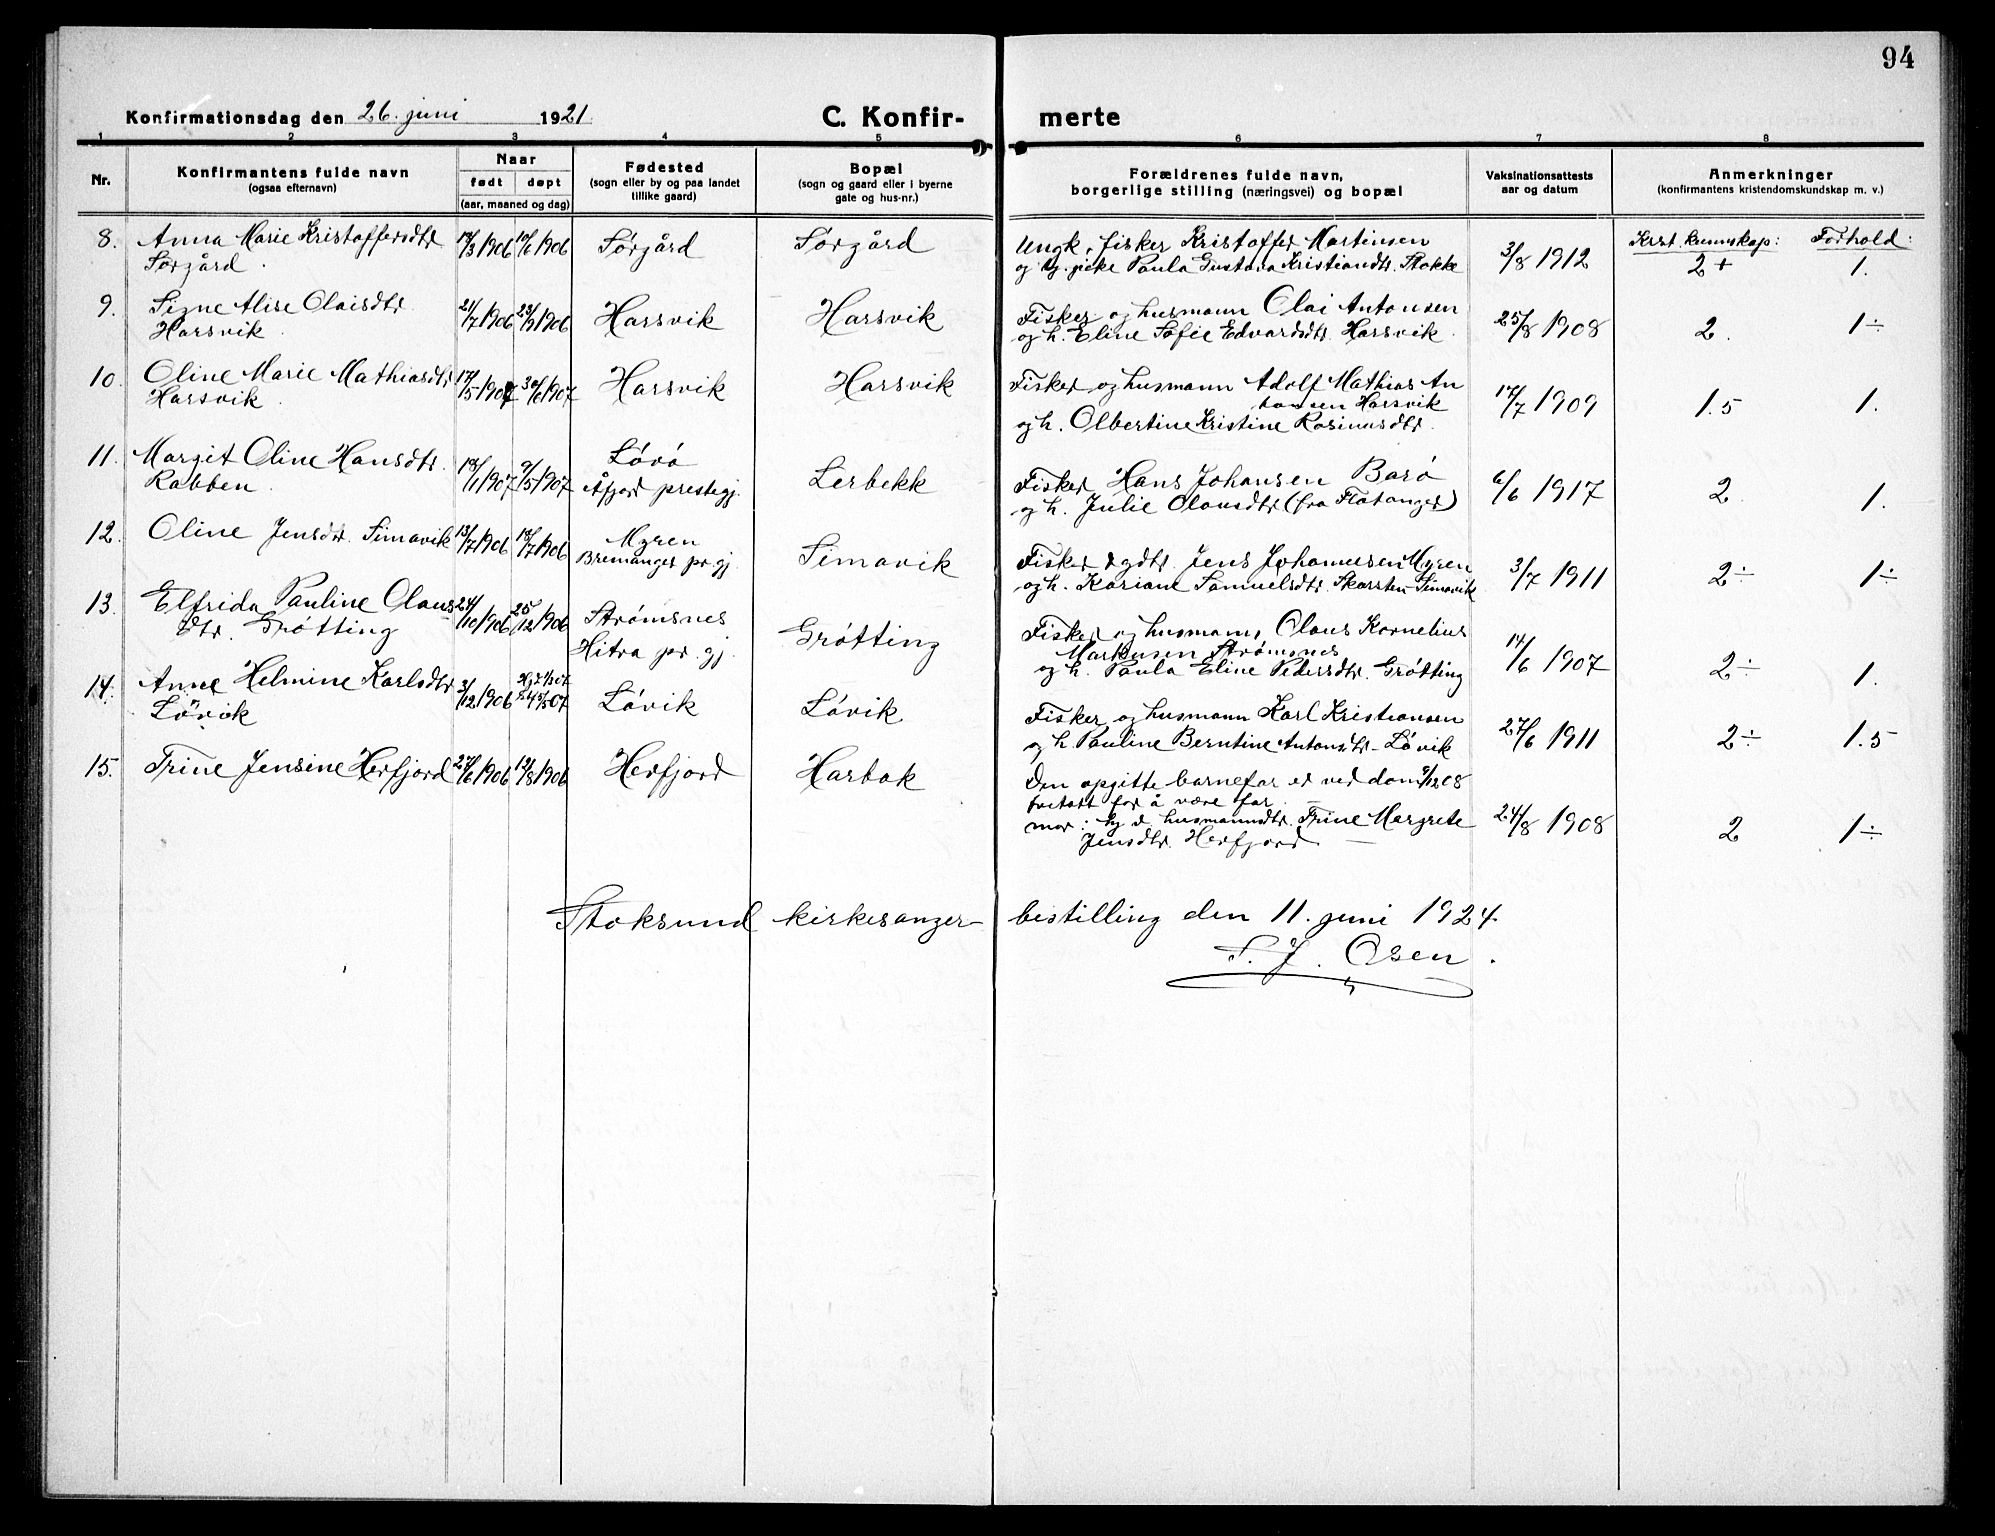 94
Konfirmationsdag den 26. juni 1921.
C. Konfir-
merte
1 2 3 4 5 6 7 8
Nr.
Konfirmantens fulde navn
(ogsaa efternavn)
Naar
født døpt
(aar, maaned og dag)
Fødested
(sogn eller by og paa landet
tillike gaard)
Bopæl
(sogn og gaard eller i byerne
gate og hus-nr.)
Forældrenes fulde navn,
borgerlige stilling (næringsvei) og bopæl
Vaksinationsattests
aar og datum
Anmerkninger
(konfirmantens kristendomskundskap m. v.)
Krst. kunnskap: Forhold:
8. Anna Marie Kristoffersdtr
Sørgård.
/3 1906 /6 1906 Sørgård Sørgård
Ungk. fisker Kristoffer Martinsen
og ty. pike Paula Gustava Kristiandtr. Stokke
3/8 1912 2+ 1.
9. Signe Alise Olaisdtr.
Harsvik.
21/7 1906 23/9 1906 Harsvik Harsvik
Fisker og husmann Olai Antonsen
og h. Eline Sofie Edvardsdtr. Harsvik.
25/8 1908 2. 1÷
10. Oline Marie Mathiasdtr
Harsvik.
17/5 1907 30/6 1907 Harsvik Harsvik
Fisker og husmann Adolf Mathias An
tonsen Harsvik
og h. Olbertine Kristine Rasinusdtr.
17/7 1909 1.5 1.
11. Margit Oline Hansdtr.
Rabben.
18/1 1907 9/5 1907 Løvø
Åfjord prestegj. Lerbekk
Fisker Hans Johansen Barø
og h. Julie Olausdtr (fra Flatanger)
6/6 1917 2. 1.
12. Oline Jensdtr. Simavik
13/7 1906 18/7 1906 Myren
Bremanger pr.gj. Simavik
Fisker & gdbr. Jens Johannesen Myren
og h. Kariane Samuelsdtr. Skarsten-Simavik
3/7 1911 2÷ 1÷
13. Elfrida Pauline Olaus
dtr. Grøtting
24/10 1906 25/12 1906 Strømsnes
Hitra pr.gj. Grøtting
Fisker og husmann, Olaus Kornelius
Markusen Strømsnes
og h. Paula Eline Pedersdtr. Grøtting
14/6 1907 2÷ 1.
14. Anne Helmine Karlsdtr
Løvik
/12 1906 Løvik Løvik
Fisker og husmann Karl Kristiansen
og h. Pauline Berntine Antonsdtr - Løvik
27/6 1911 2÷ 1.5
15. Trine Jensine Herfjord
27/6 1906 19/8 1906 Herfjord Harbak
Den opgitte barnefar er ved dom 9/12 08
fritatt for å være far.
mor: ty d. husmannsdtr. Trine Margrete
Jensdtr. Herfjord
24/8 1908 2 1÷
Stoksund kirkesanger-
bestilling den 11. juni 1924.
S. J. Osen.